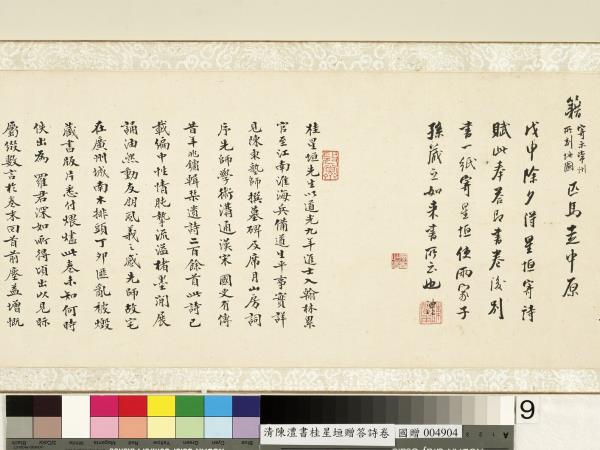 籍
寄示常州
所刻地圖
匹馬走中原
戊申除夕得星垣寄詩
賦此奉答即書卷後別
書一紙寄星垣使兩家子
孫藏之如來書所云也
桂星垣先生以道光九年進士入翰林累
官至江南淮海兵備道生平事實詳
見陳東塾師撰墓碑及席月山房詞
序先師學術溝通漢宋 國史有傳
昔年兆鏞輯槃遺詩二百餘首此詩已
載編中性情肫摯流溢楮墨閒展
誦油然動友朋風義之感先師故宅
在廣州城南木排頭丁卯匪亂被燬
藏書版片悉付煨燼此卷未知何時
佚出為 羅君深如所得頃出以見眎
屬綴數言於卷末回首前塵益增慨
清陳澧書桂星垣贈答詩卷
國贈 004904
9